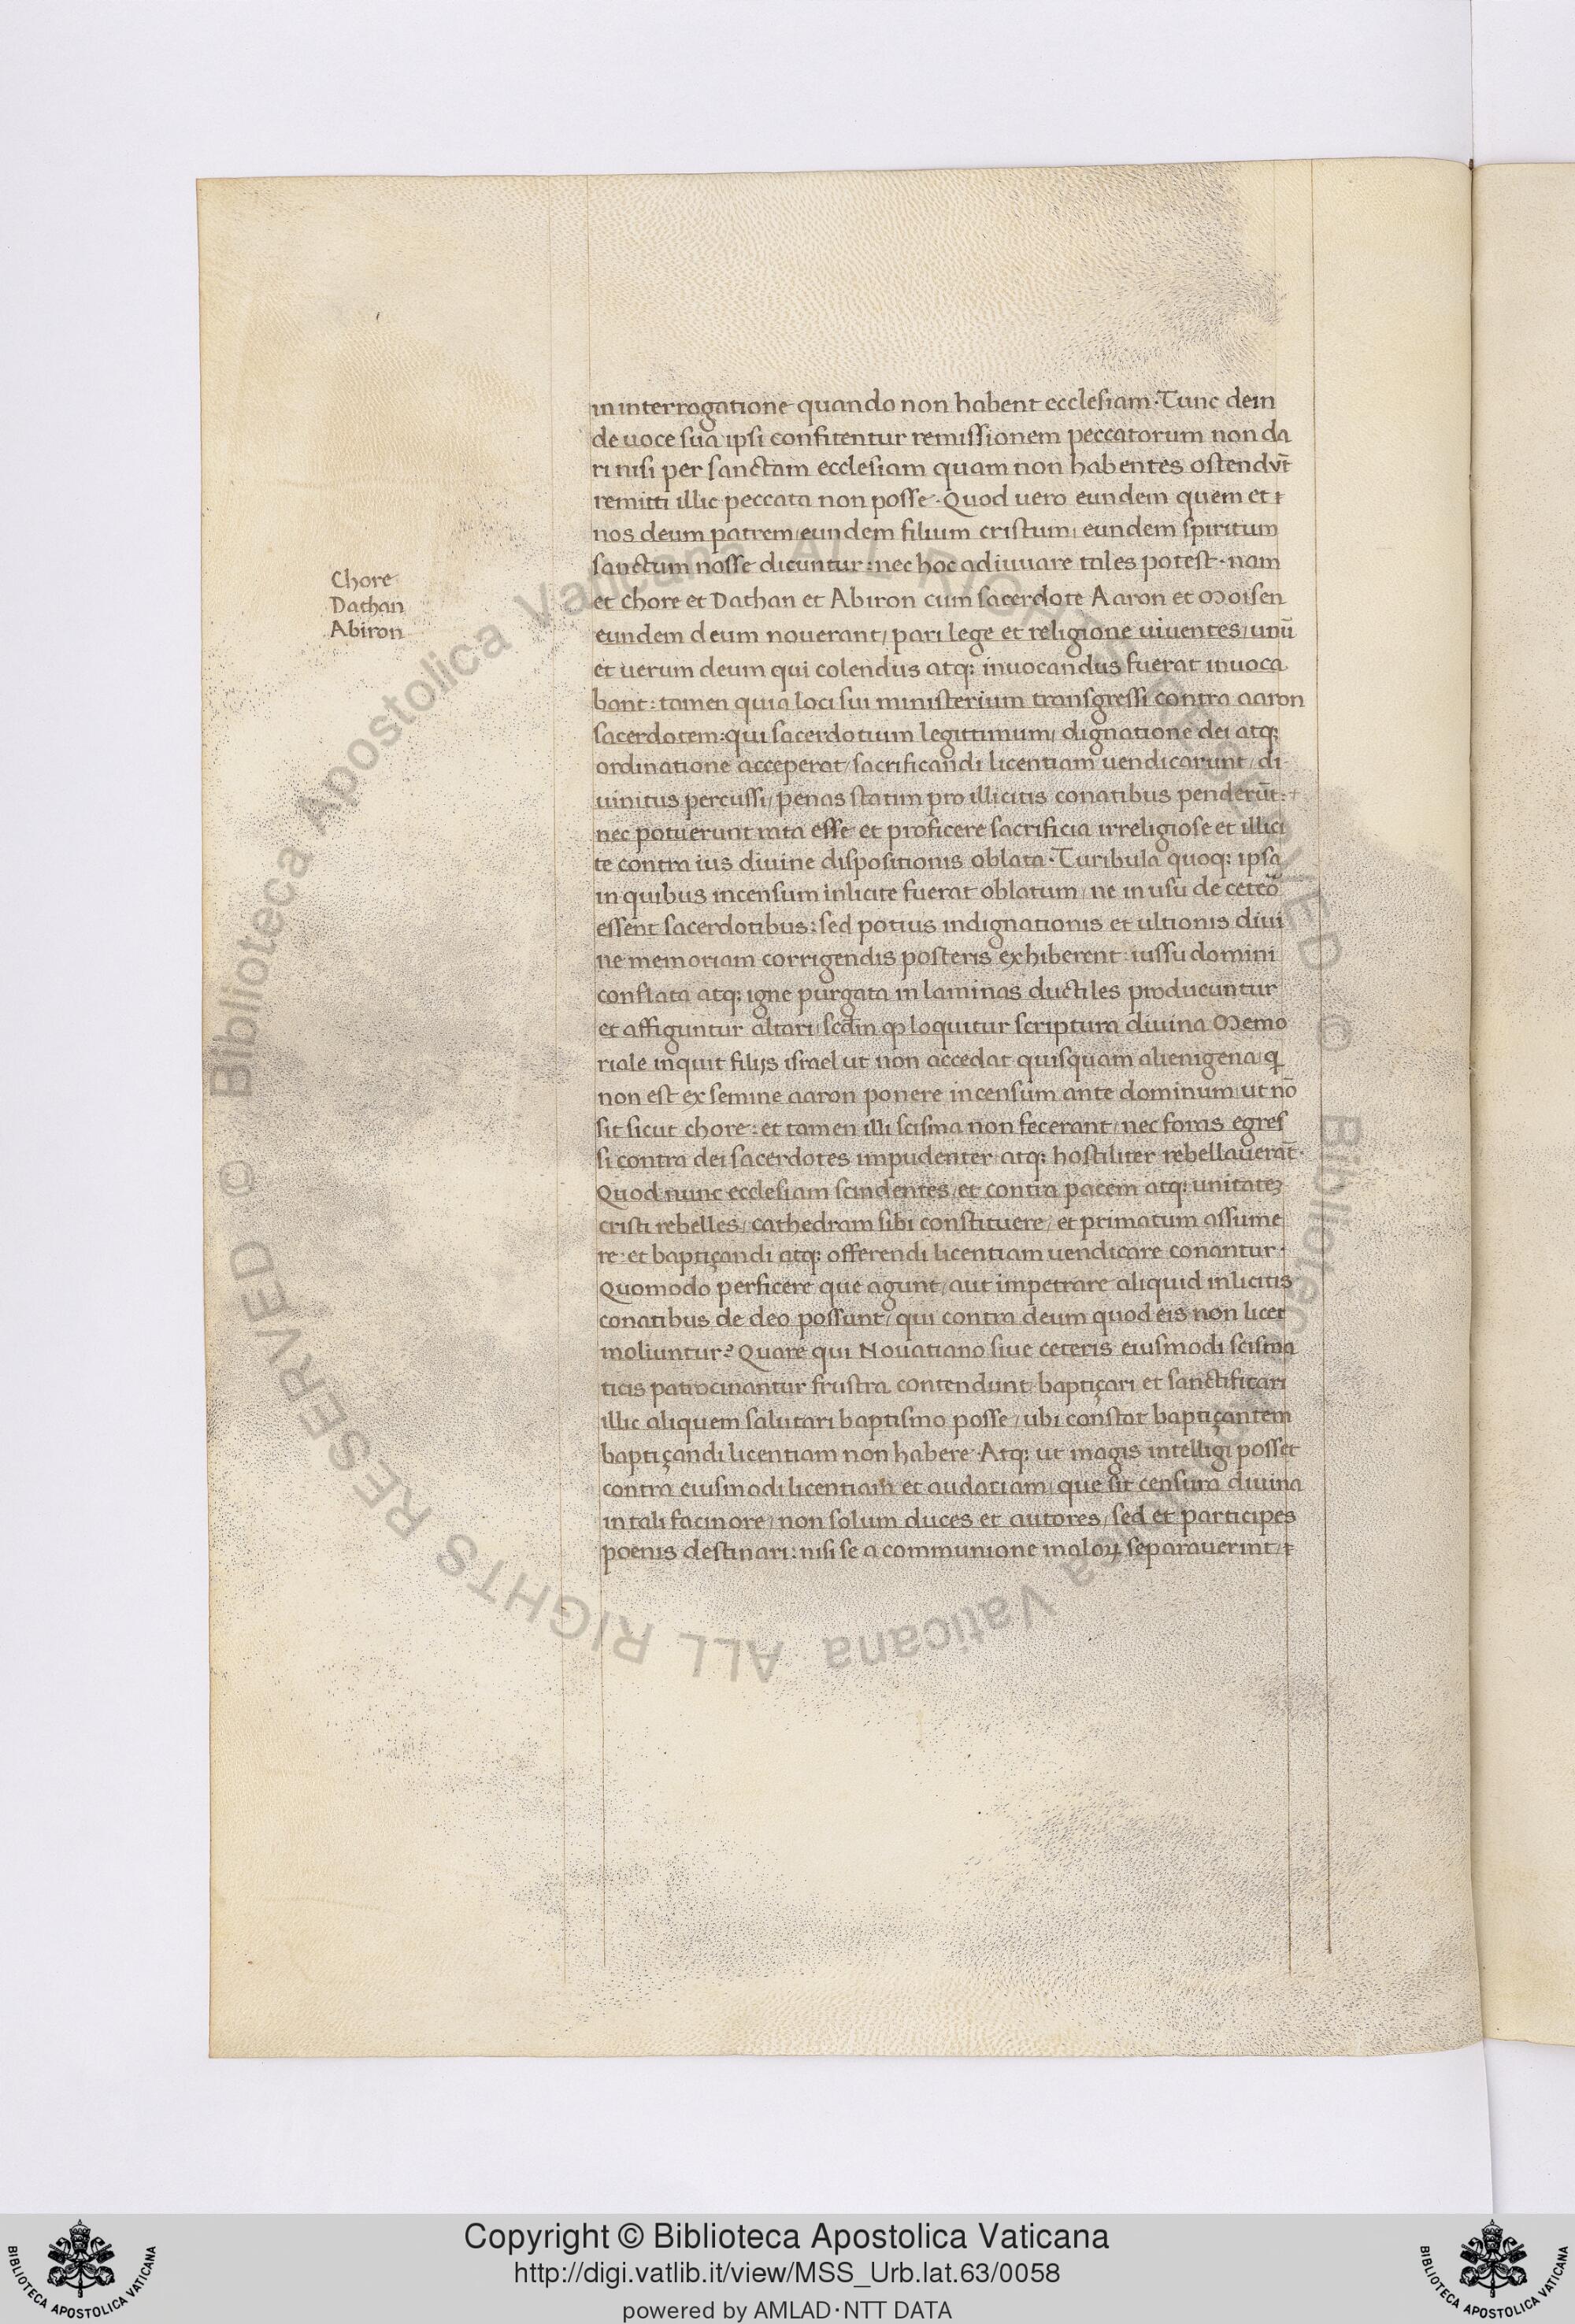 Chore
Dathan
Abiron
in interrogatione quando non habent ecclesiam·Tunc dein
de uoce sua ipsi confitentur remissionem peccatorum non da
ri nisi per sanctam ecclesiam quam non habentes ostendūt
remitti illic peccata non posse·Quod uero eundem quem et
nos deum patrem/eundem filium cristum/eundem spiritum
sanctum nosse dicuntur:nec hoc adiuuare tales potest·nam
et chore et Dathan et Abiron cum sacerdote Aaron et Moisen
eundem deum nouerant/pari lege et religione uiuentes/unū
et uerum deum qui colendus atq; inuocandus fuerat inuoca
bant:tamen quia loci sui ministerium transgressi contra aaron
sacerdotem:qui sacerdotium legittimum/dignatione dei atq;
ordinatione acceperat/sacrificandi licentiam uendicarunt/di
uinitus percussi/penas statim pro illicitis conatibus penderūt:
nec potuerunt rata esse et proficere sacrificia irreligiose et illici
te contra ius diuine dispositionis oblata·Turibula quoq; ipsa
in quibus incensum inlicite fuerat oblatum/ne in usu de ceteō
essent sacerdotibus:sed potius indignationis et ultionis diui
ne memoriam corrigendis posteris exhiberent:iussu domini
conflata atq; igne purgata in laminas ductiles producuntur
et affiguntur altari/scdm qɔ loquitur scriptura diuina Memo
riale inquit filijs israel ut non accedat quisquam alienigena/q
non est ex semine aaron ponere incensum ante dominum/ut nō
sit sicut chore:et tamen illi scisma non fecerant/nec foras egres
si contra dei sacerdotes impudenter atq; hostiliter rebellauerāt·
Quod nunc ecclesiam scindentes/et contra pacem atq; unitatez
cristi rebelles/cathedram sibi constituere/et primatum assume
re:et baptiçandi atq; offerendi licentiam uendicare conantur·
Quomodo perficere que agunt/aut impetrare aliquid inlicitis
conatibus de deo possunt/qui contra deum quod eis non licet
moliuntur? Quare qui Nouatiano siue ceteris eiusmodi scisma
ticis patrocinantur frustra contendunt baptiçari et sanctificari
illic aliquem salutari baptismo posse/ubi constat baptiçantem
baptiçandi licentiam non habere·Atq; ut magis intelligi posset
contra eiusmodi licentiam et audatiam/que sit censura diuina
in tali facinore/non solum duces et autores/sed et participes
poenis destinari:nisi se a communione maloꝝ separauerint/
© Biblioteca Apostolica Vaticana ALL RIGHTS RESERVED © Biblioteca Apostolica Vaticana ALL RIGHTS RESERVED
Copyright © Biblioteca Apostolica Vaticana
http://digi.vatlib.it/view/MSS_Urb.lat.63/0058
powered by AMLAD·NTT DATA
BIBLIOTECA APOSTOLICA VATICANA
BIBLIOTECA APOSTOLICA VATICANA